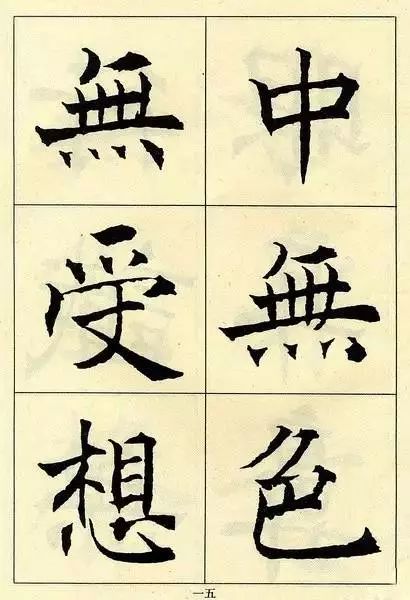 中無色
無受想
一五